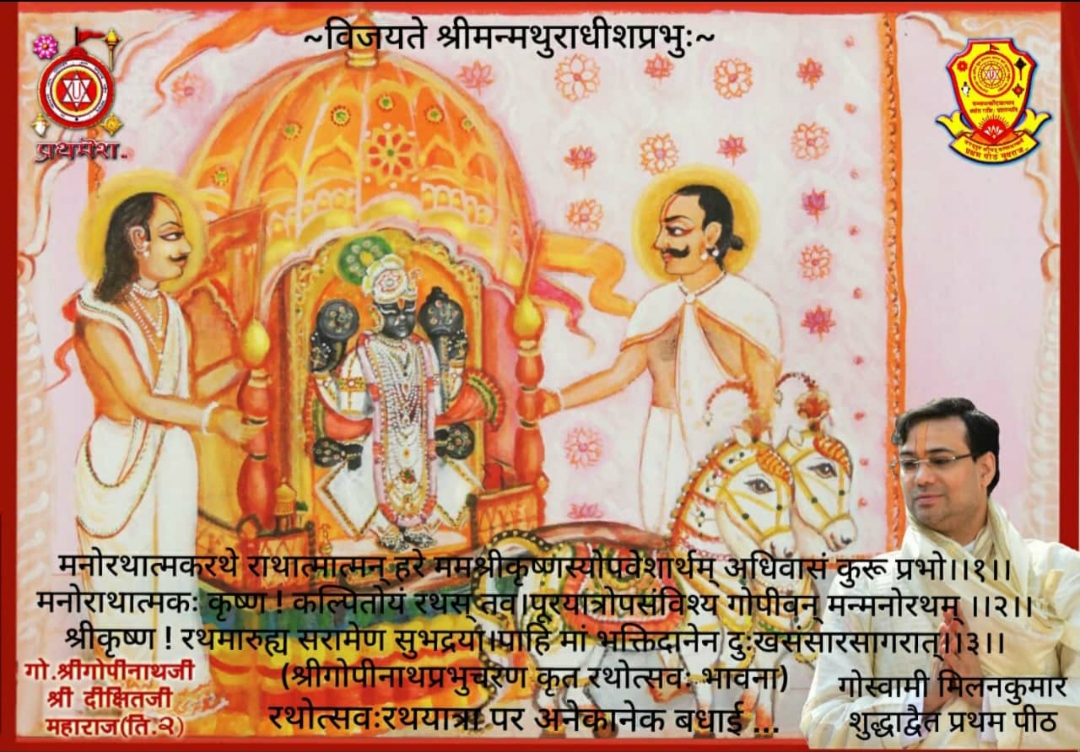 ~विजयते श्रीमन्मथुराधीशप्रभुः~
प्रथमेश..
मनोरथात्मकरथे राथात्मात्मन् हरे ममश्रीकृष्णस्योपवेशार्थम् अधिवासं कुरू प्रभो।।१।।
मनोराथात्मकः कृष्ण ! कल्पितोयं रथस् तव।पूरयात्रोपसंविश्य गोपीवन् मन्मनोरथम् ।।२।।
श्रीकृष्ण ! रथमारुह्य सरामेण सुभद्रया।पाहि मां भक्तिदानेन दुःखसंसारसागरात्।।३।।
(श्रीगोपीनाथप्रभुचरण कृत रथोत्सवः भावना)
रथोत्सवःरथयात्रा पर अनेकानेक बधाई ...
गो.श्रीगोपीनाथजी
श्री दीक्षितजी
महाराज(ति.२)
गोस्वामी मिलनकुमार
शुद्धाद्वैत प्रथम पीठ